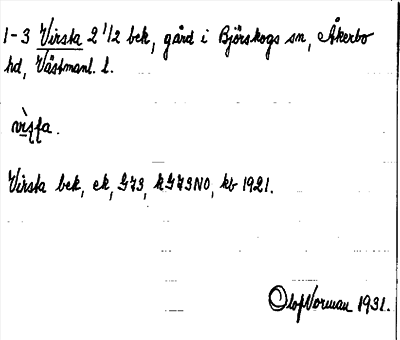 1-3 Virsta 2 1/2 bek, gård i Björskogs sn, Åkerbo
hd, Västmanl. l.
Virsta bek, ek, G73, kG73NO, kb 1921.
Olof Norman 1931.